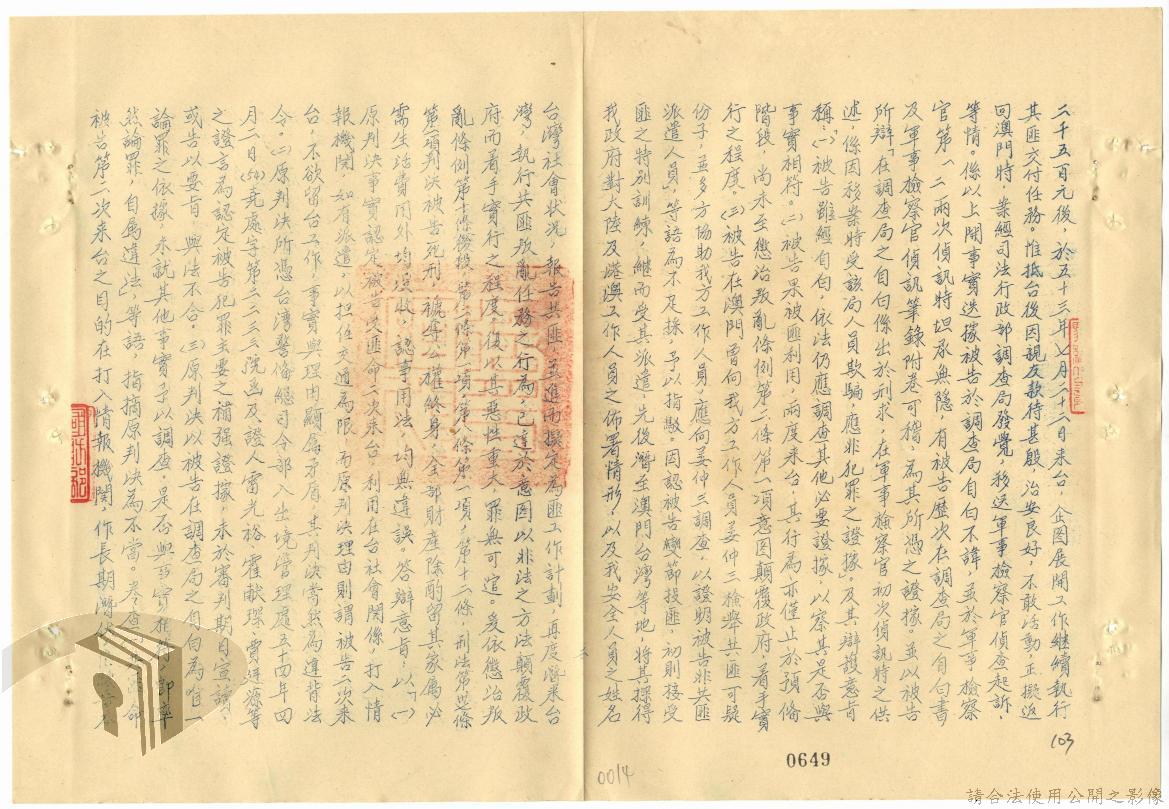 二千五百元後，於五十三年七月二十六日来台，企图展開工作継續執行
其匪交付任務。惟抵台後因親友款待甚殷，治安良好，不敢活動，正擬返
回澳門時，案經司法行政部調查局發覺，移送軍事檢察官偵查起訴，
等情。係以上開事實迭據被告於調查局自白不諱，並於軍事檢察
官第一、二兩次偵訊時坦承無隐，有被告歷次在調查局之自白書
及軍事檢察官偵訊筆錄附卷可稽，為其所憑之證據。並以被告
所辯，在調查局之自白係出於刑求，在軍事檢察官初次偵訊時之供
述，係因移案時受該局人員欺騙，應非犯罪之證據」。及其辯護意旨
稱：「㈠被告雖經自白，依法仍應調查其他必要證據，以察其是否與
事實相符。㈡被告果被匪利用，兩度来台，其行為亦僅止於預備
階段，尚未至懲治叛亂條例第二條第一項意图顛覆政府，着手實
行之程度。㈢被告在澳門曾向我方工作人員姜仲三檢舉共匪可疑
份子，並多方協助我方工作人員，應向姜仲三調查，以證明被告非共匪
派遣人員」等語為不足採，予以指駁。因認被告變節投匪，初則接受
匪之特别訓練，継而受其派遣，先後潛至澳門台灣等地，將其探得
我政府對大陸及港澳工作人員之佈署情形，以及我安全人員之姓名
103
台灣社會狀況，報告共匪，並進而擬定為匪工作計劃，再度潛来台
灣，執行共匪叛亂任務之行為，已達於意图以非法之方法顛覆政
府而着手實行之程度，復以其惡性重大，罪無可逭。爰依懲治叛
亂條例第十條後段、第二條第一項、第八條第一項、第十二條，刑法第卅七條
第一項判決被告死刑，褫奪公權終身，全部財產除酌留其家屬必
需生活費用外均没收，認事用法，均無違誤。答辯意旨，以「㈠
原判決事實認定被告受匪命二次来台，利用在台社會関係，打入情
報機関，如有派遣，以担任交通為限，而原判決理由則謂被告二次来
台，不欲留台工作，事實與理由顯屬矛盾，其判決當然為違背法
令。㈡原判決所憑台灣警備總司令部入出境管理處五十四年四
月二日(54)堯處字第二三三三號函及證人雷光裕、霍献琛、賈維源等
之證言為認定被告犯罪主要之補强證據，未於審判期日宣讀，
或告以要旨，與法不合。㈢原判決以被告在調查局之自白為唯一
論罪之依據，未就其他事實予以調查，是否與事實相符，即率
然論罪，自屬違法」等語，指摘原判決為不當。卷查
被告第二次来台之目的在打入情報機関，作長期潛伏
0014
0649
請合法使用公開之影像